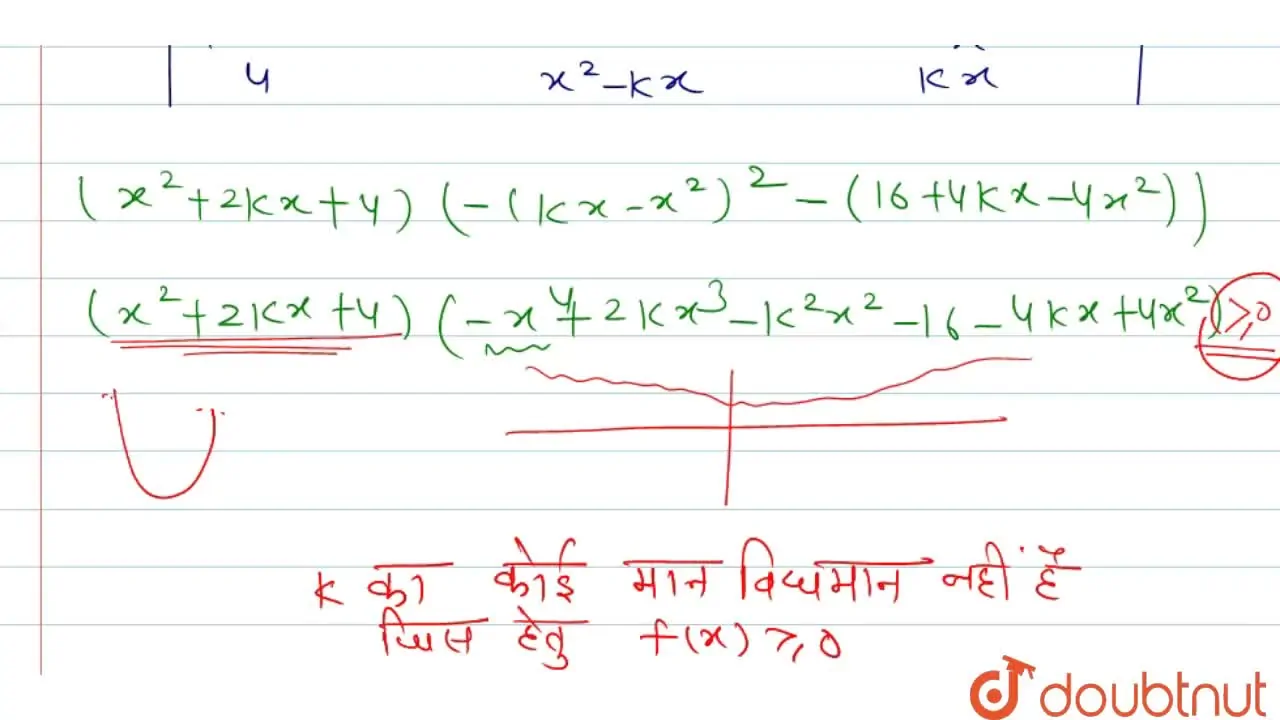 4 x² – kx kx
(x² + 2kx + 4) (–(kx – x²)² – (16 + 4kx – 4x²))
(x² + 2kx + 4) (–x⁴ + 2kx³ – k²x² – 16 – 4kx + 4x²) ≥ 0
k का कोई मान विध्यमान नहीं है
जिस हेतु f(x) ≥ 0
doubtnut